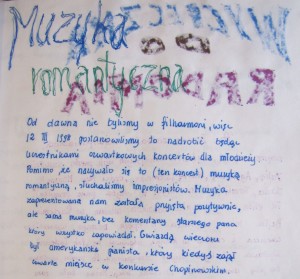 Muzyka
romantyczna
Od dawna nie byliśmy w filharmonii, więc
12 III 1998 postanowiliśmy to nadrobić będąc
uczestnikami czwartkowych koncertów dla młodzieży.
Pomimo, że nazywało się to (ten koncert) muzyką
romantyczną, słuchaliśmy impresjonistów. Muzyka
zaprezentowana nam została przyjęta pozytywnie,
ale sama muzyka, bez komentarzy starszego pana
który wszystko zapowiadał. Gwiazdą wieczoru
był amerykański pianista, który kiedyś zajął
czwarte miejsce w konkursie Chopinowskim.